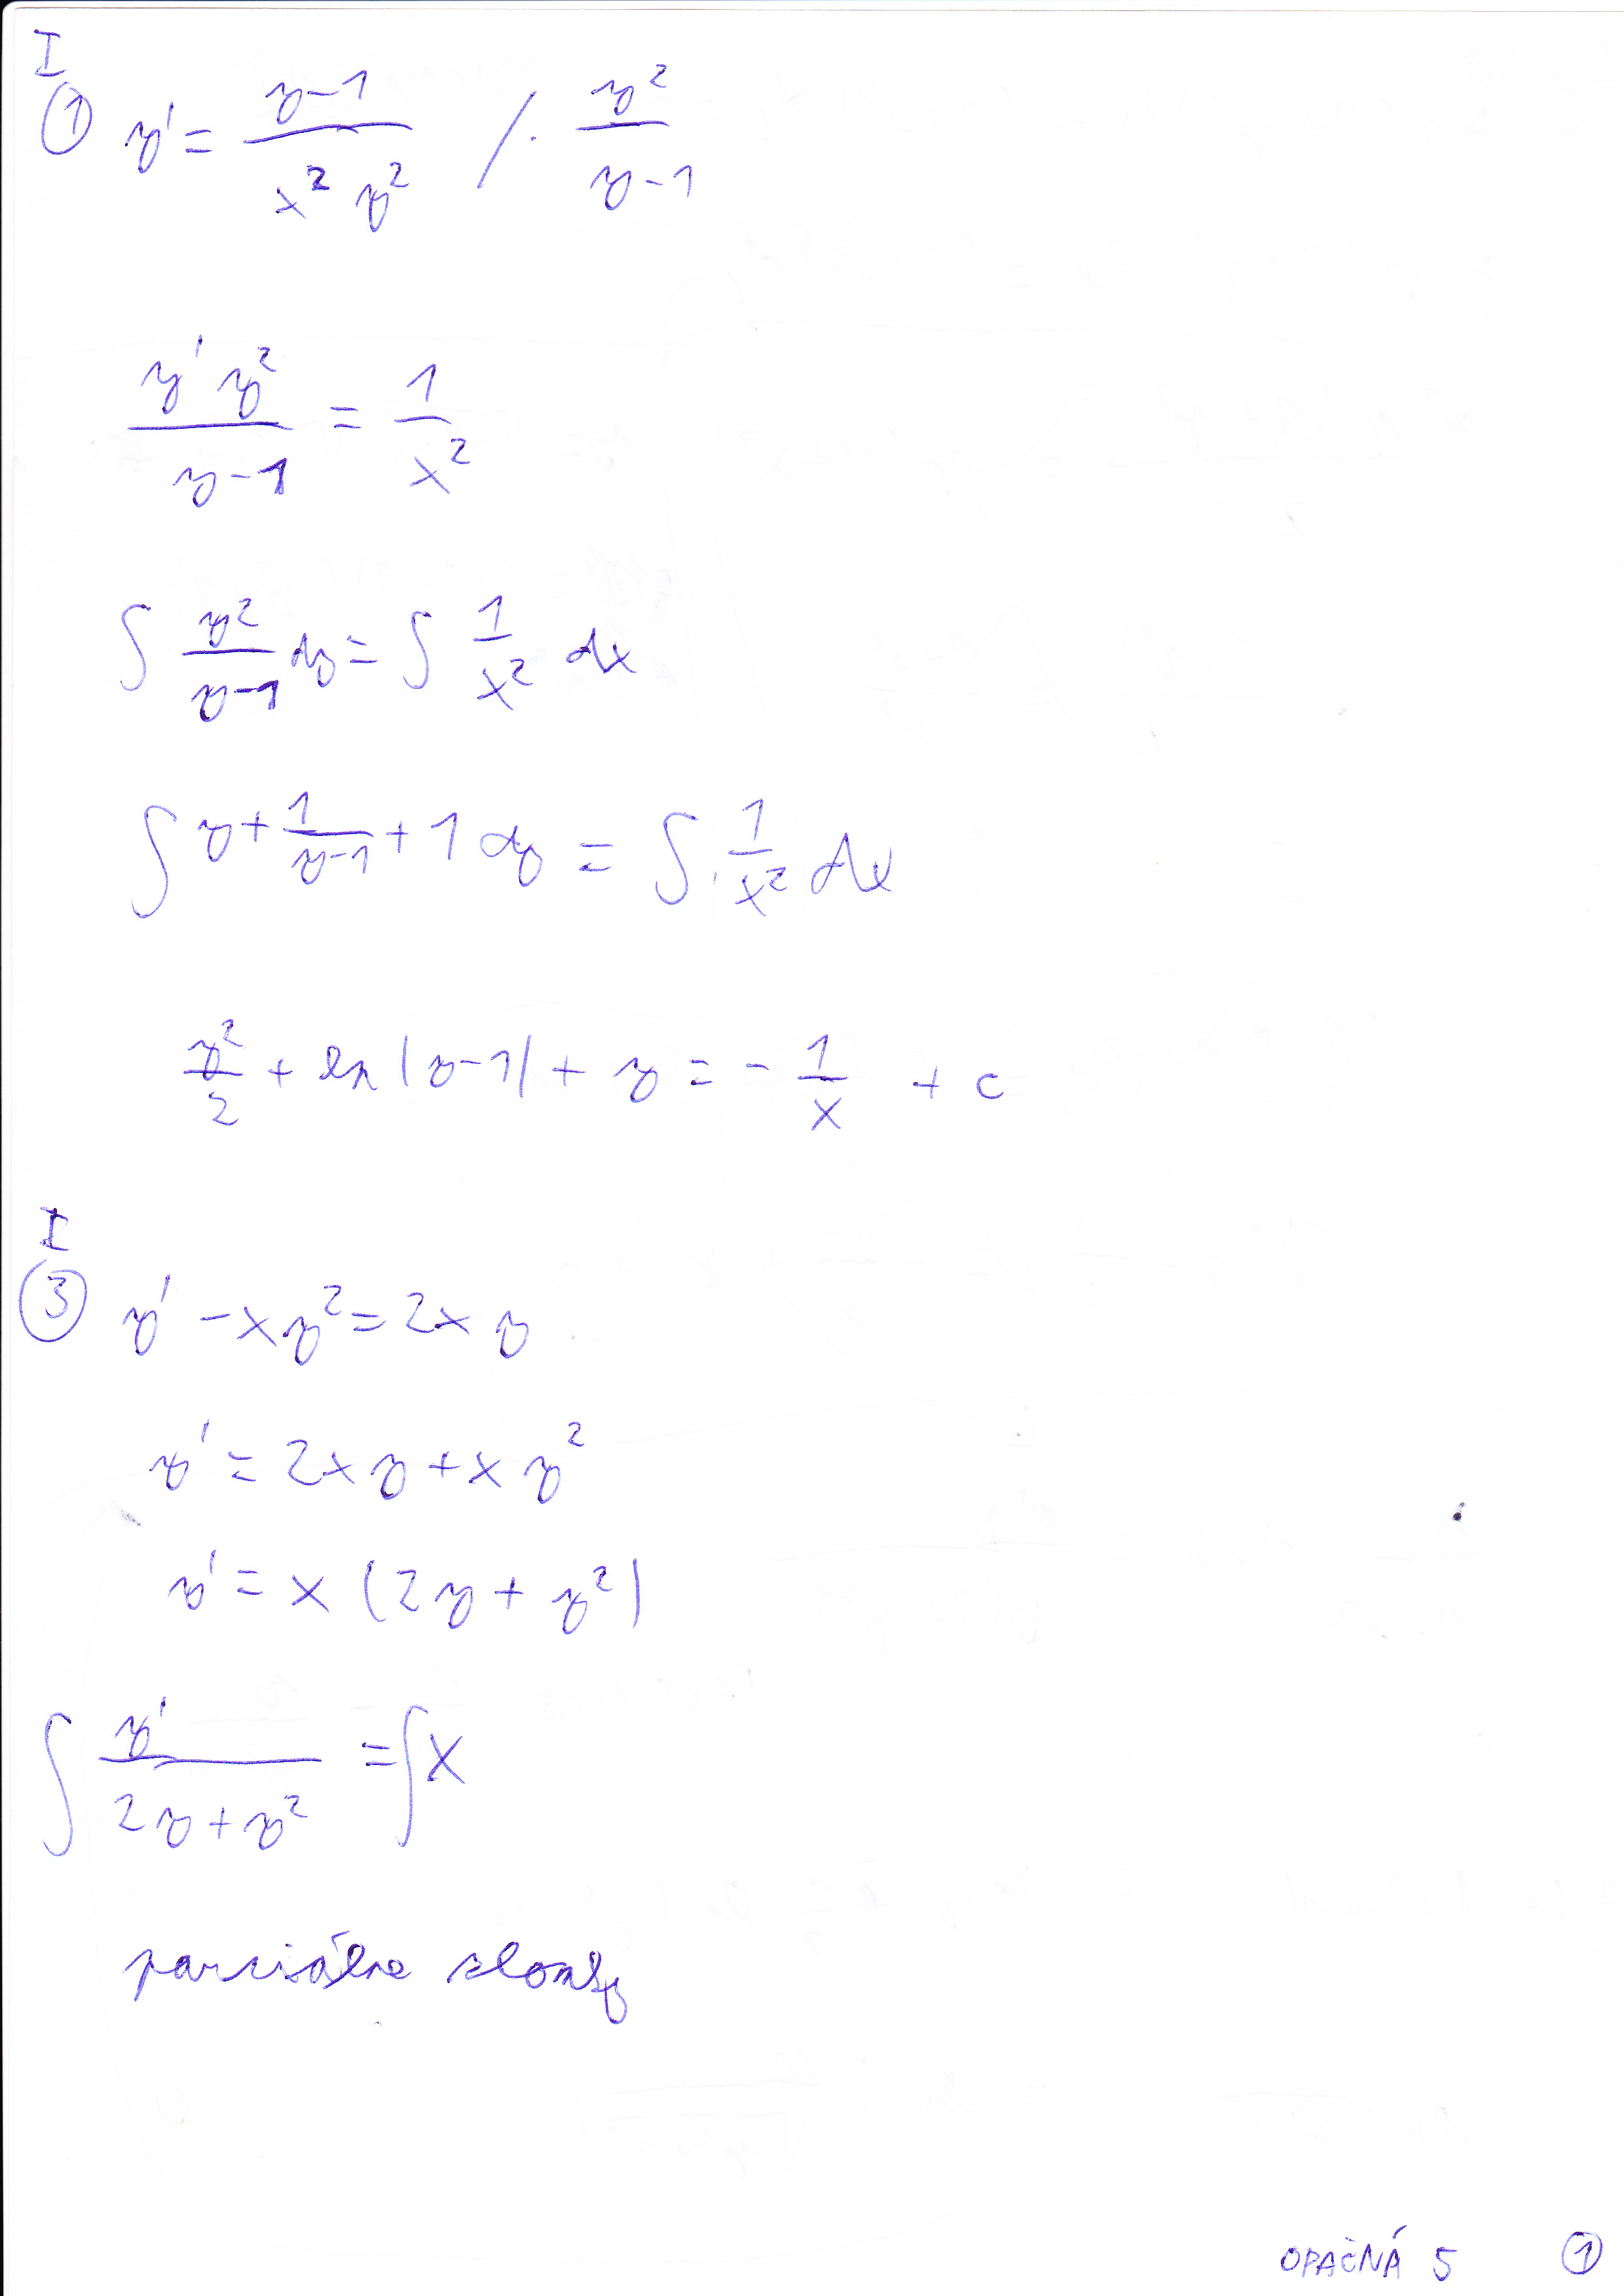 I
① y' = (y-1)/(x² y²) /· y²/(y-1)
(y' y²)/(y-1) = 1/x²
∫ y²/(y-1) dy = ∫ 1/x² dx
∫ y + 1/(y-1) + 1 dy = ∫ 1/x² dx
y²/2 + ln |y-1| + y = - 1/x + c
I
③ y' - xy² = 2xy
y' = 2xy + xy²
y' = x (2y + y²)
∫ y'/(2y + y²) = ∫ x
parciálne zlomky
OPAČNÁ 5 ①